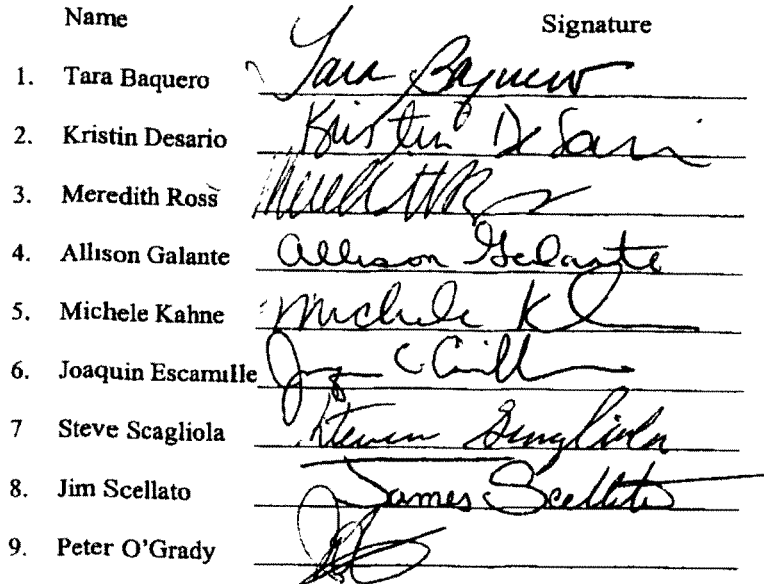 Name Signature
1. Tara Baquero Tara Baquero
2. Kristin Desario Kristin DeSario
3. Meredith Ross Meredith Ross
4. Allison Galante Allison Galante
5. Michele Kahne Michele
6. Joaquin Escamille
7 Steve Scagliola Steven Scagliola
8. Jim Scellato James Scellato
9. Peter O'Grady